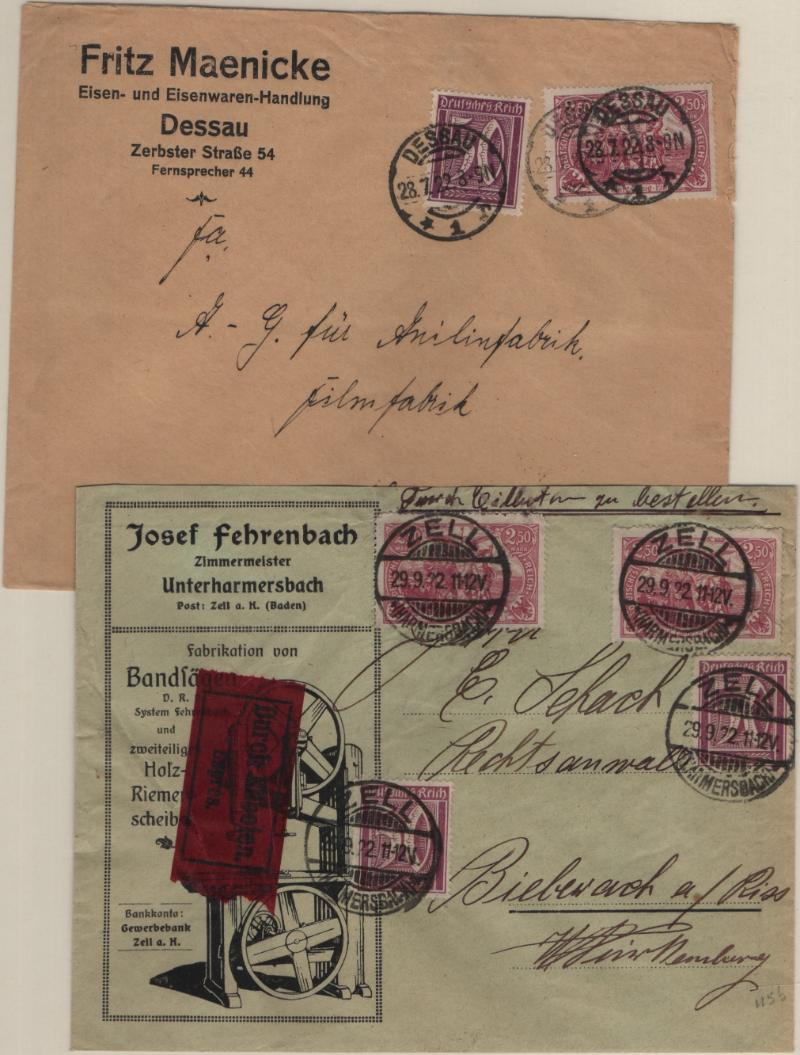 Fritz Maenicke
Eisen- und Eisenwaren-Handlung
Dessau
Zerbster Straße 54
Fernsprecher 44
Deutsches Reich
50
DESSAU
28.7.22.8-9N
* 1
2,50
DESSAU
28.7.22.8-9N
* 1
Fa.
A.-G. für Anilinfabrik.
Filmfabrik
Durch Eilboten zu bestellen.
Josef Fehrenbach
Zimmermeister
Unterharmersbach
Post: Zell a. H. (Baden)
Fabrikation von
Bandsägen
D. R.
System Fehr
und
zweiteilig
Holz-
Riemen
scheib
Durch Eilboten.
Exprès.
Bankkonto:
Gewerbebank
Zell a. H.
2,50
ZELL
29.9.22.11-12V.
(HARMERSBACH)
2,50
ZELL
29.9.22.11-12V.
(HARMERSBACH)
Deutsches Reich
ZELL
29.9.22.11-12V.
HARMERSBACH
Deutsches Reich
ZELL
9.22.11-12V.
HARMERSBACH
Herrn
E. Schach
Rechtsanwalt
Biberach a/Riss
Württemberg
1155